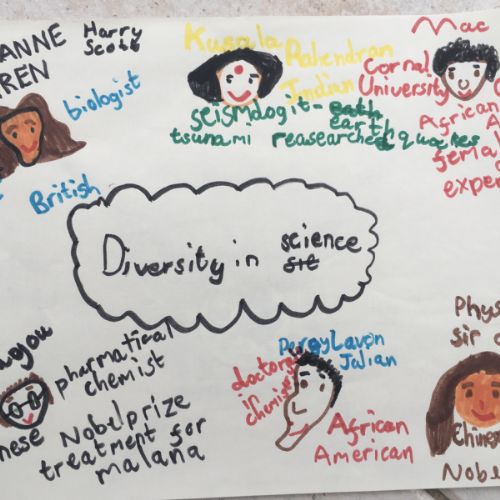 ANNE
REN
Harry
Scott
biologist
British
Kusala
Rahendran
Indian
seismologit-
earth
tsunami reasearched quackes
Mac
Cornal
University
African
A
female
exper
Diversity in science
pharmatical
chemist
Nobel prize
treatment for
malana
nese
Percy Lavon
Julian
doctor
in
chemist
African
American
Phys
sir
Chines
Nobe